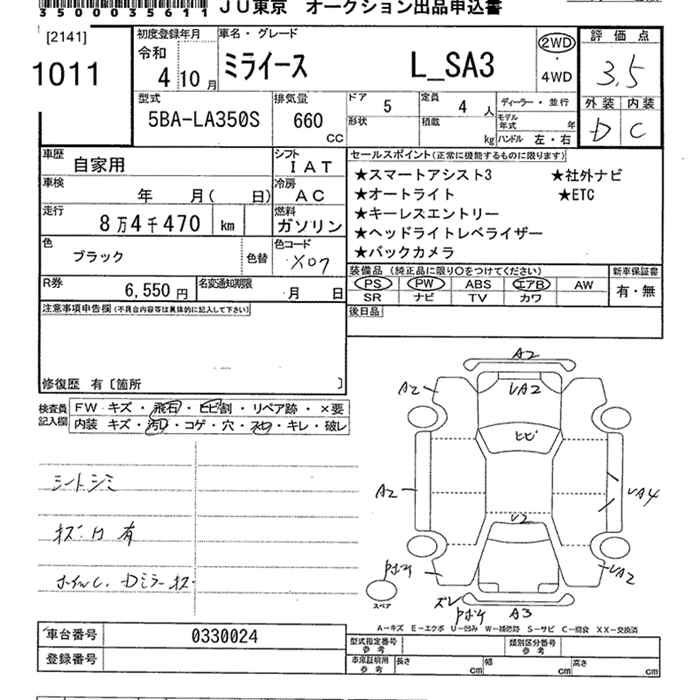 35000335611 JU東京 オークション出品申込書
[2141]
1011
初度登録年月
令和
4 10 月
車名・グレード
ミライース L_SA3
2WD
・
4WD
評価点
3.5
外装 内装
D C
型式
5BA-LA350S
排気量
660
CC
ドア 5
形状
定員 4 人
積載 kg
ディーラー・並行
モデル年式 年
ハンドル 左・右
車歴
自家用
シフト
IAT
車検
年 月( 日)
冷房
AC
走行
8万4千470 km
燃料
ガソリン
色
ブラック
色替
色コード
X07
R券
6,550円
名変通知期限
月 日
セールスポイント(正常に機能するものに限ります)
★スマートアシスト3 ★社外ナビ
★オートライト ★ETC
★キーレスエントリー
★ヘッドライトレベライザー
★バックカメラ
装備品 (純正品に限り○をつけてください)
新車保証書
PS PW ABS エアB AW
有・無
SR ナビ TV カワ
後日品
注意事項申告欄(不具合内容等は具体的に記入して下さい)
修復歴 有〔箇所 〕
検査員
記入欄
FW キズ・飛石・ヒビ割・リペア跡・×要
内装 キズ・汚れ・コゲ・穴・スレ・キレ・破レ
シートシミ
キズ・凹 有
ホイルC. Dミラーキズ
A2
A2
UA2
ヒビ
A2
UA4
U2
UA2
ズレ
A3
スペア
A-キズ E-エクボ U-凹み W-補修跡 S-サビ C-腐食 XX-交換済
車台番号
0330024
登録番号
型式指定番号
参考
類別区分番号
参考
車庫証明用
参考
長さ cm
幅 cm
高さ cm